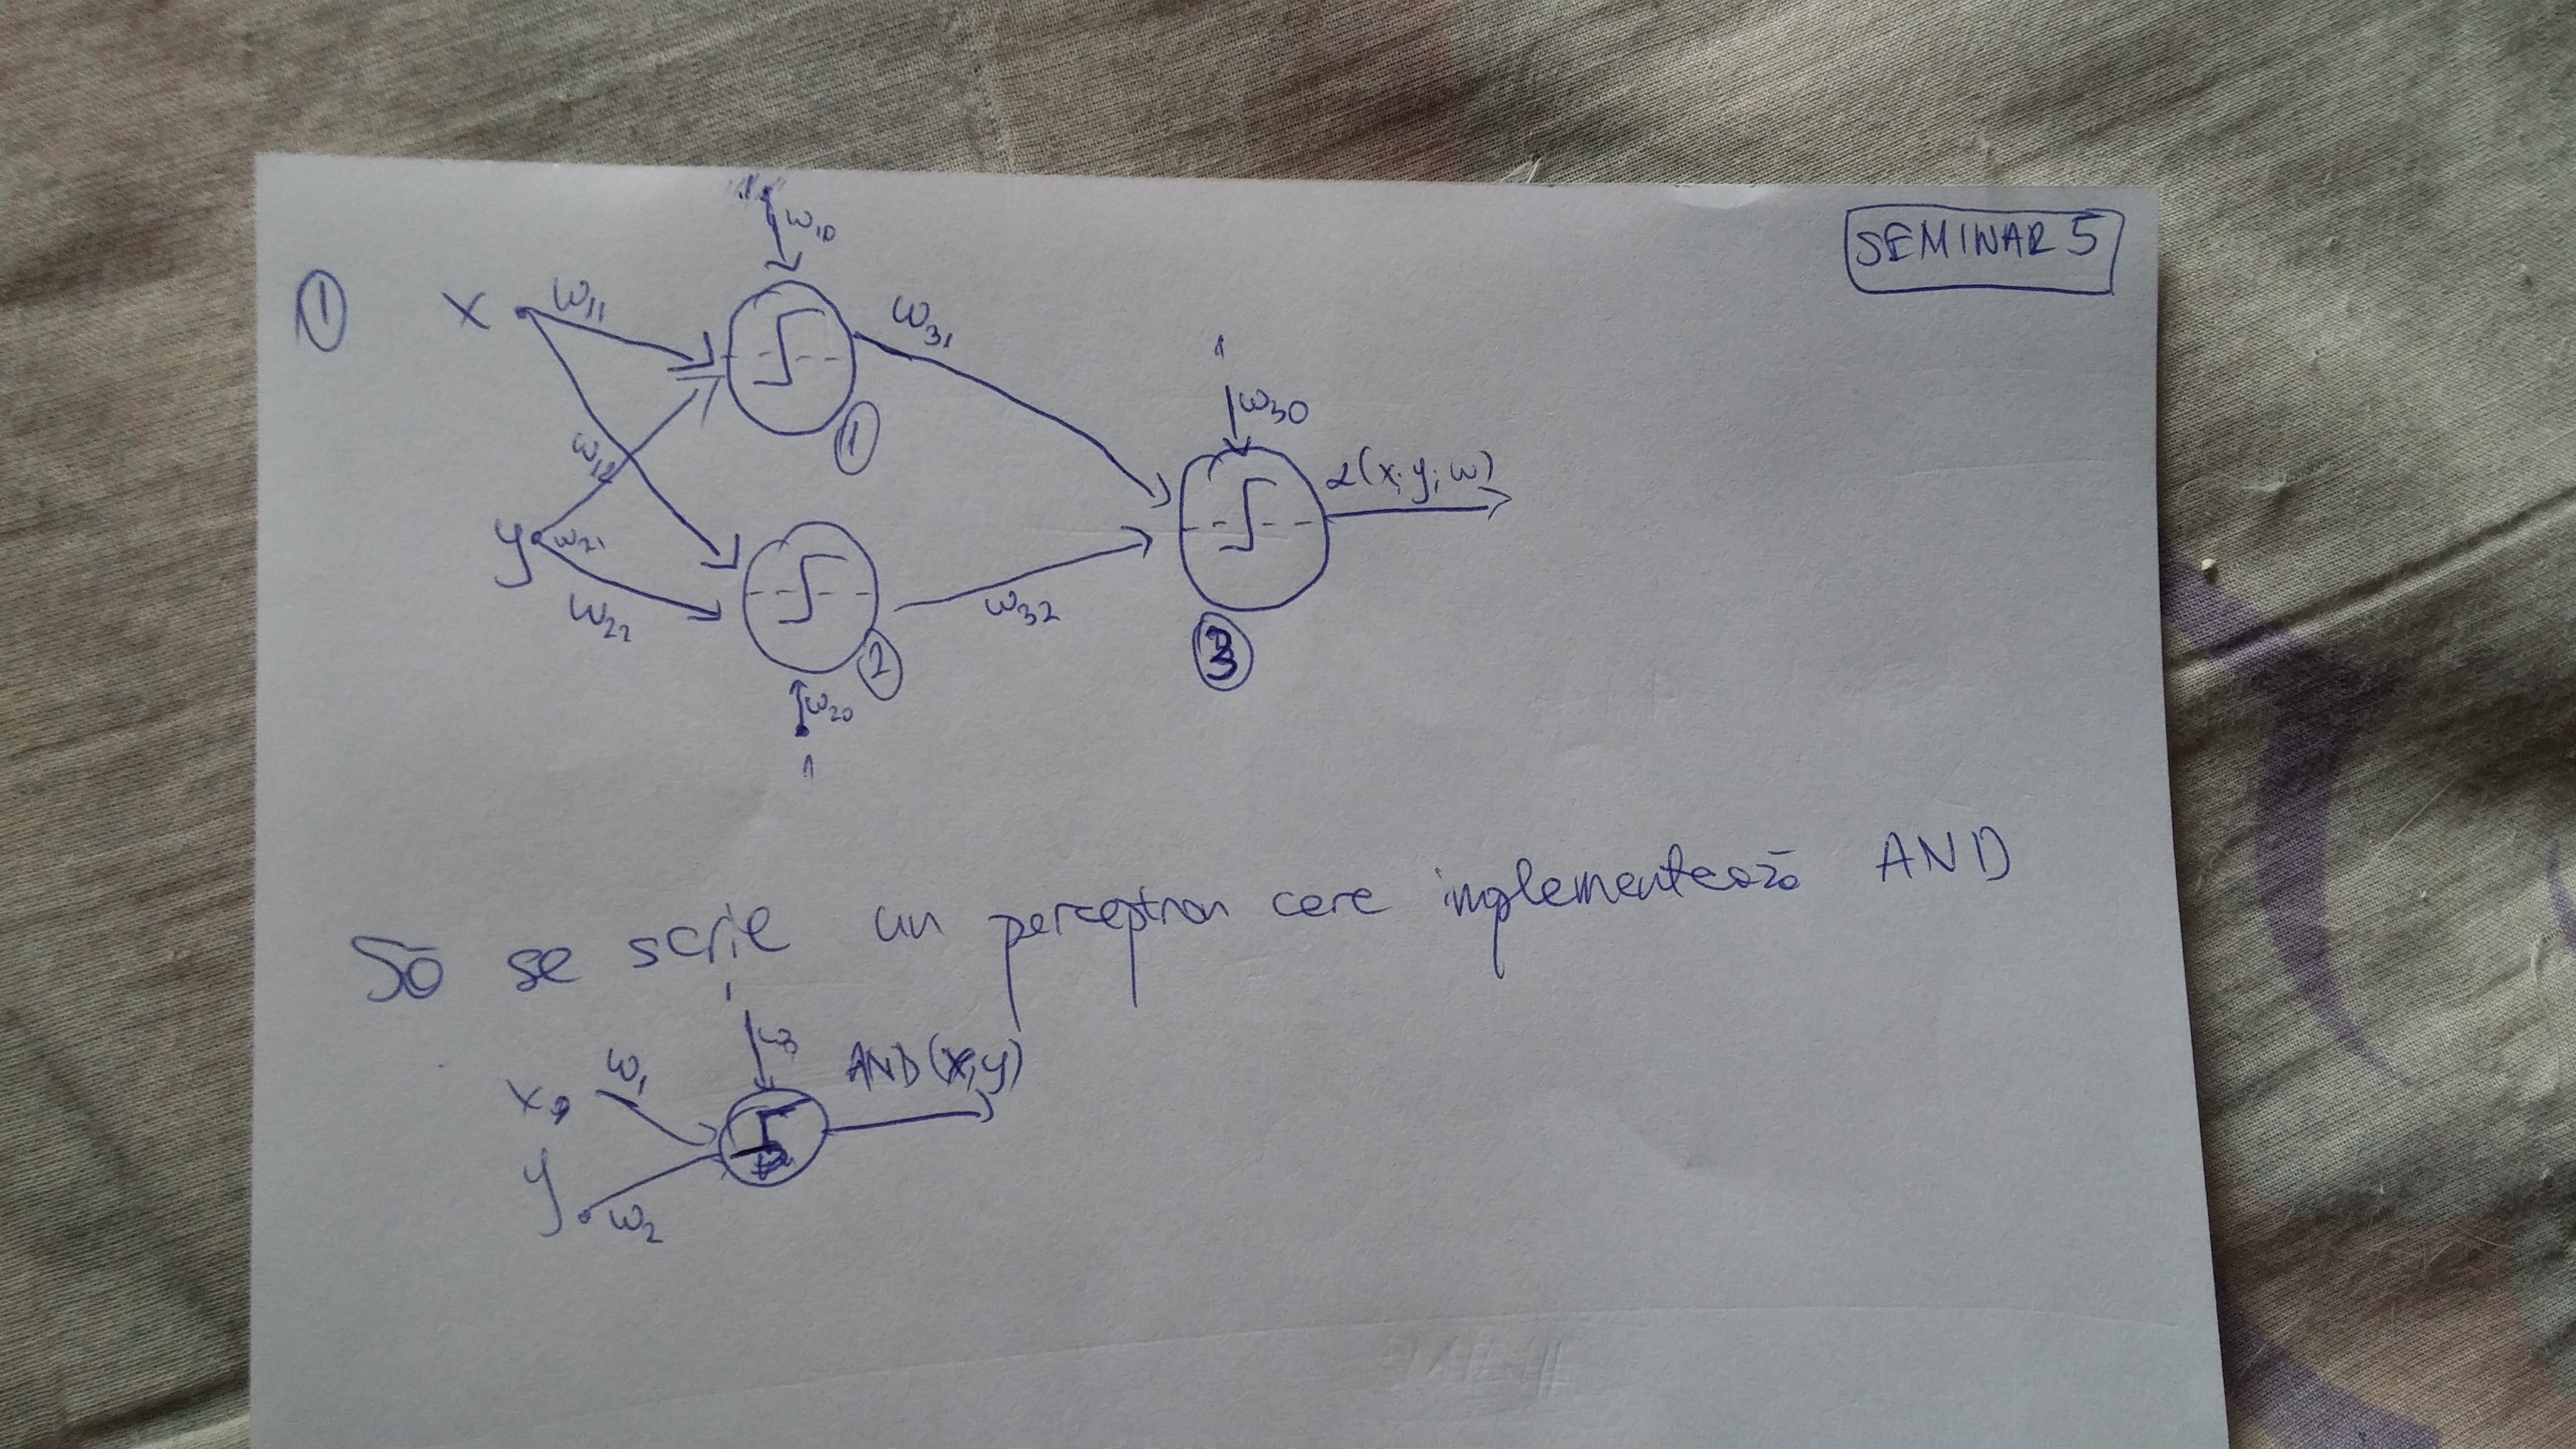 SEMINAR 5
①
x
y
w10
w11
w12
w21
w22
w20
①
②
w31
w32
1
w30
③
z(x;y;w)
Să se scrie un perceptron care implementează AND
x
y
w1
w2
1
AND(x,y)